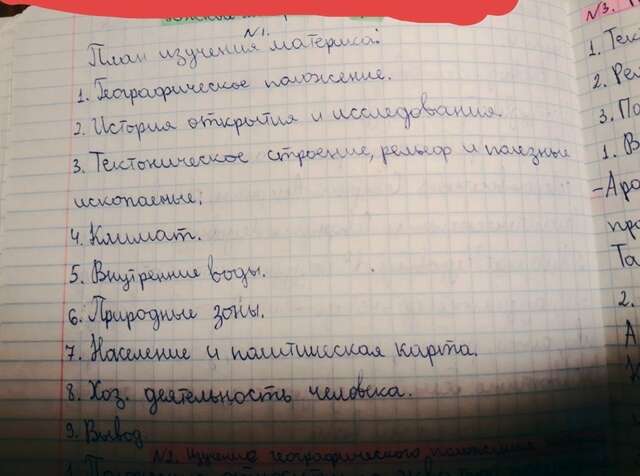 N1.
План изучения материка:
1. Географическое положение.
2. История открытия и исследования.
3. Тектоническое строение, рельеф и полезные
ископаемые;
4. Климат.
5. Внутренние воды.
6. Природные зоны.
7. Население и политическая карта.
8. Хоз. деятельность человека.
9. Вывод
N2. Изучение географического положения
N3.
1. Тек
2. Рел
3. По
1. В
- Аро
пр
Та
2.
А